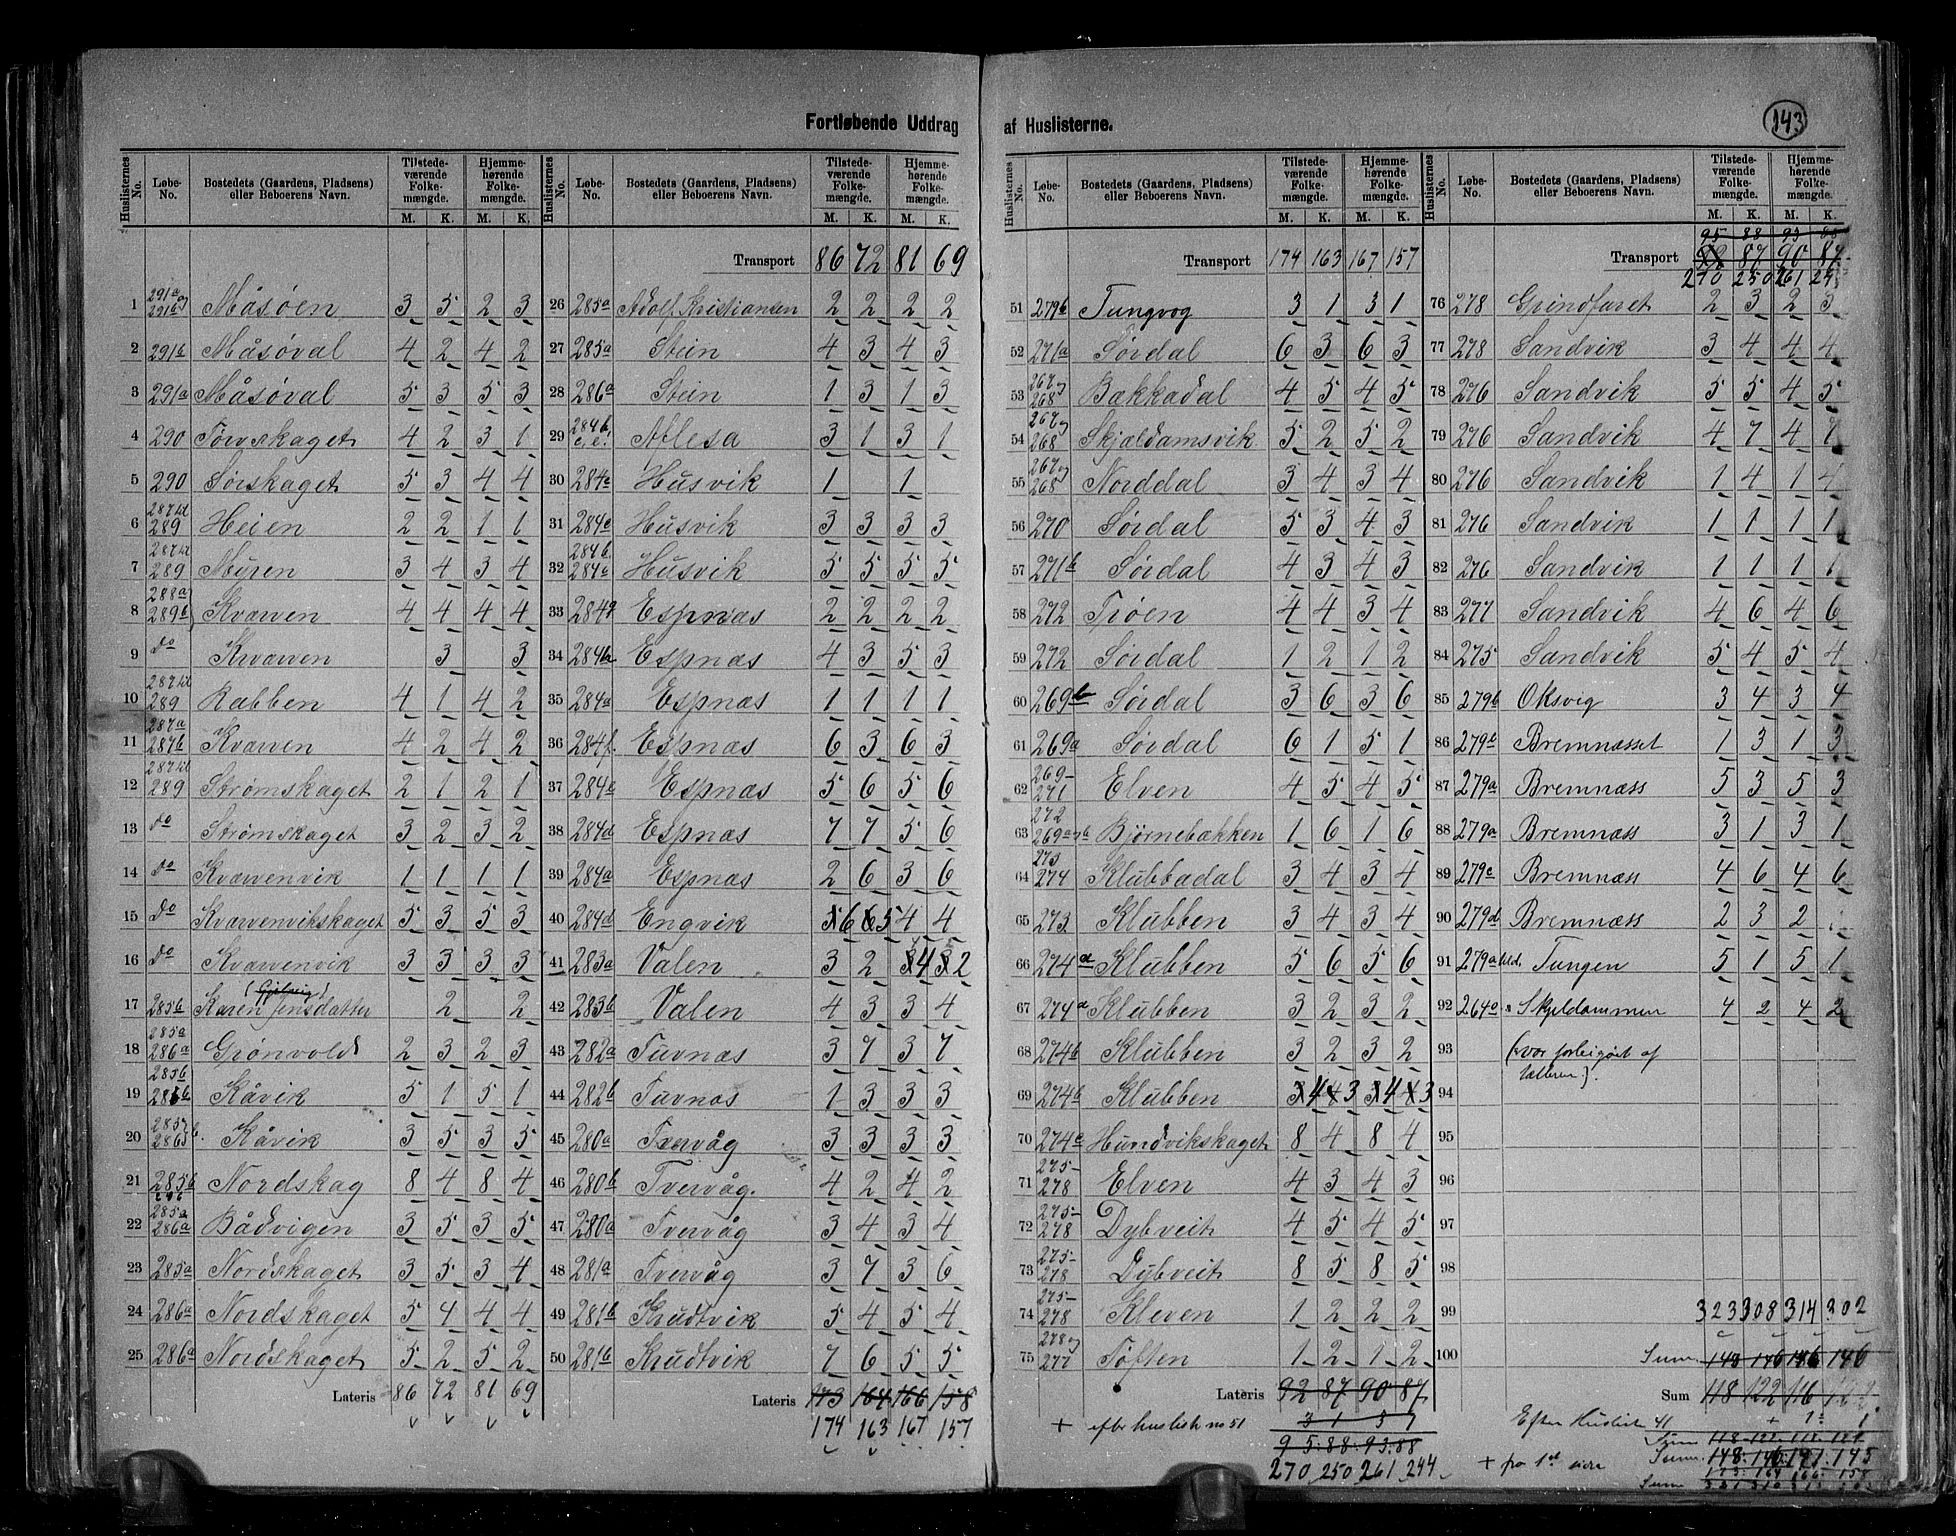 143
Fortløbende Uddrag af Huslisterne.
Huslisternes No. Løbe-No. Bostedets (Gaardens, Pladsens) eller Beboerens Navn. Tilstedeværende Folkemængde. M. K. Hjemmehørende Folkemængde. M. K.
1 291a og 291b Måsøen 3 5 2 3
2 291b Måsøval 4 2 4 2
3 291a Måsøval 5 3 5 3
4 290 Tørskaget 4 2 3 1
5 290 Sørskaget 5 3 4 4
6 289 Heien 2 2 1 1
7 289 Myren 3 4 3 4
8 288a 289b Kvawen 4 4 4 4
9 do Kvawen 3 3
10 289 Rabben 4 1 4 2
11 287a 287b Kvawen 4 2 4 2
12 289 Strømskaget 2 1 2 1
13 do Strømskaget 3 2 3 2
14 do Kvawenvik 1 1 1 1
15 do Kvawenvikskaget 5 3 5 3
16 do Kvawenvik 3 3 3 3
17 285b Karen Jensdatter 2 2
18 285a 286a Grønvold 2 3 2 3
19 285b Kåvik 5 1 5 1
20 Kåvik 3 5 3 5
21 285b Nordskag 8 4 8 4
22 285a 286a Bådvigen 3 5 3 5
23 285a Nordskaget 3 5 3 4
24 286a Nordskaget 5 4 4 4
25 286a Nordskaget 5 2 5 2
Lateris 86 72 81 69
Huslisternes No. Løbe-No. Bostedets (Gaardens, Pladsens) eller Beboerens Navn. Tilstedeværende Folkemængde. M. K. Hjemmehørende Folkemængde. M. K.
Transport 86 72 81 69
26 285a Adolf Kristiansen 2 2 2 2
27 285a Stein 4 3 4 3
28 286a Stein 1 3 1 3
29 284b Aflesa 3 1 3 1
30 284c Husvik 1 1
31 284c Husvik 3 3 3 3
32 284b 284c Husvik 5 5 5 5
33 Espnæs 2 2 2 2
34 Espnæs 4 3 5 3
35 284a Espnæs 1 1 1 1
36 284f. Espnæs 6 3 6 3
37 Espnæs 5 6 5 6
38 284d Espnæs 7 7 5 6
39 284a Espnæs 2 6 3 6
40 284d Engvik 6 5 4 4
41 283a Valen 3 2 4 2
42 283b Valen 4 3 3 4
43 282a Turnæs 3 7 3 7
44 282b Turnæs 1 3 3 3
45 280a Tvervåg 3 3 3 3
46 280b Tvervåg. 4 2 4 2
47 280a Tvervåg 3 4 3 4
48 281a Tvervåg 3 7 3 6
49 281b Krudtvik 5 4 5 4
50 281b Krudtvik 7 6 5 5
Lateris 173 164 166 158
174 163 167 157
Huslisternes No. Løbe-No. Bostedets (Gaardens, Pladsens) eller Beboerens Navn. Tilstedeværende Folkemængde. M. K. Hjemmehørende Folkemængde. M. K.
Transport 174 163 167 157
51 279b Tungvog 3 1 3 1
52 271a Sørdal 6 3 6 3
53 267 og 268 Bakkadal 4 5 4 5
54 267 og 268 Skjældamsvik 5 2 5 2
55 267 og 268 Norddal 3 4 3 4
56 270 Sørdal 5 3 4 3
57 271b Sørdal 4 3 4 3
58 272 Trøen 4 4 3 4
59 272 Sørdal 1 2 1 2
60 269b Sørdal 3 6 3 6
61 269a Sørdal 6 1 5 1
62 269-271 Elven 4 5 4 5
63 272 269a Bjørnebækken 1 6 1 6
64 273 274 Klubbadal 3 4 3 4
65 273 Klubben 3 4 3 4
66 274d Klubben 5 6 5 6
67 274a Klubben 3 2 3 2
68 274b Klubben 3 2 3 2
69 274b Klubben 4 3 4 3
70 274c Hundvikskaget 8 4 8 4
71 275-278 Elven 4 3 4 3
72 275-278 Dybveit 4 5 4 5
73 275-278 Dybveit 8 5 8 5
74 275-278 Kleven 1 2 2 2
75 278 og 277 Tøften 1 2 1 2
Lateris 92 87 90 87
+ efter huslisk no 51 3 1 3 1
95 88 93 88
270 250 261 244
Huslisternes No. Løbe-No. Bostedets (Gaardens, Pladsens) eller Beboerens Navn. Tilstedeværende Folkemængde. M. K. Hjemmehørende Folkemængde. M. K.
95 88 93 88
Transport 92 87 90 87
270 250 261 24
76 278 Grindfaret 2 3 2 3
77 278 Sandvik 3 4 4 4
78 276 Sandvik 5 5 4 5
79 276 Sandvik 4 7 4 7
80 276 Sandvik 1 4 1 4
81 276 Sandvik 1 1 1 1
82 276 Sandvik 1 1 1 1
83 277 Sandvik 4 6 4 6
84 275 Sandvik 5 4 5 4
85 279b Oksvig 3 4 3 4
86 Bremnæsset 1 3 1 3
87 279a Bremnæss 5 3 5 3
88 279a Bremnæss 3 1 3 1
89 279c Bremnæss 4 6 4 6
90 279d Bremnæss 2 3 2
91 279a Tungen 5 1 5 1
92 264a Skjeldammen 4 2 4 2
93 (var forbigået af
Tælleren).
94
95
96
97
98
99 323 308 314 302
100 Sum 143 146 146 146
Sum 118 122 116 122
Efter Huslist 41 + 1 1
Sum
+ fra 1st side Sum 148 146 141 145
173 164 166 158
Sum